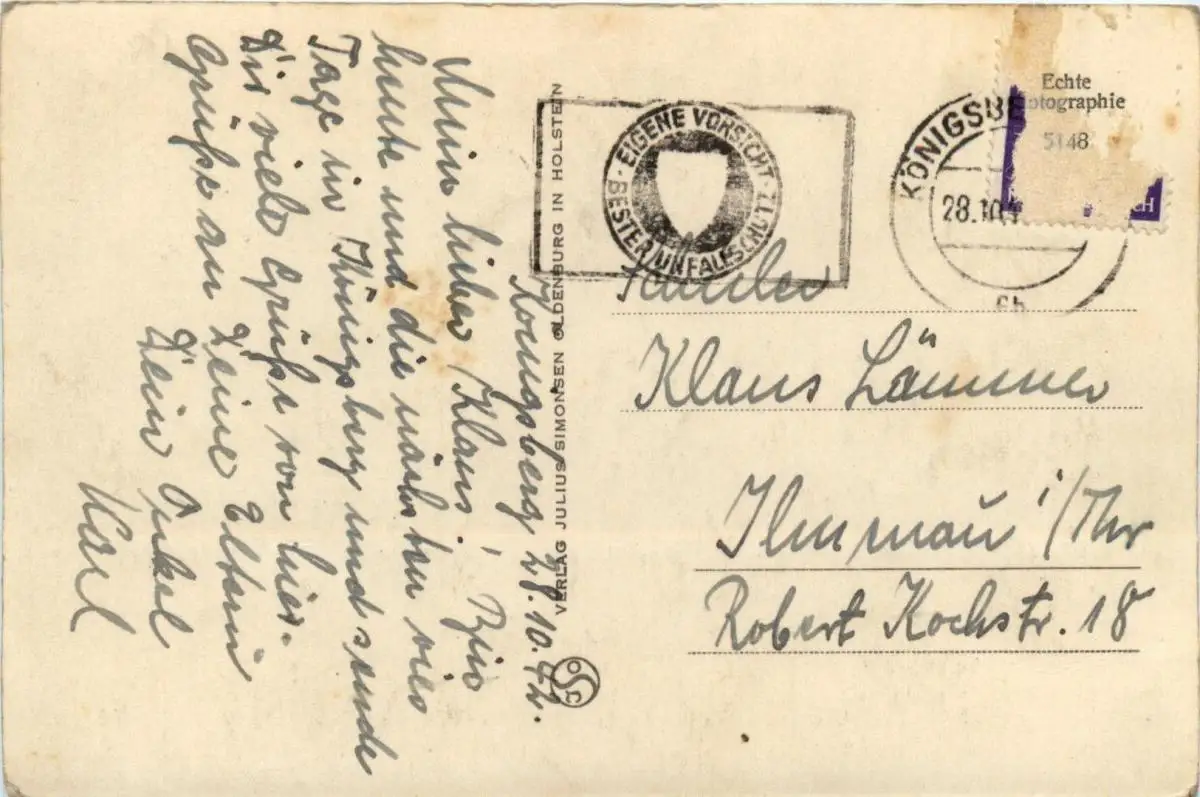 Königsberg 28.10.42.
Mein lieber Klaus! Bin
heute und die nächsten vier
Tage in Königsberg und sende
Dir viele Grüße von hier.
Grüße an Deine Eltern
Dein Onkel
Karl
VERLAG JULIUS SIMONSEN OLDENBURG IN HOLSTEIN
EIGENE VORSICHT
BESTER UNFALLSCHUTZ
KÖNIGSBE
28.10.
Echte
otographie
5148
CH
Schüler
Klaus Lämmer
Ilmenau i/Thr
Robert Kochstr. 18